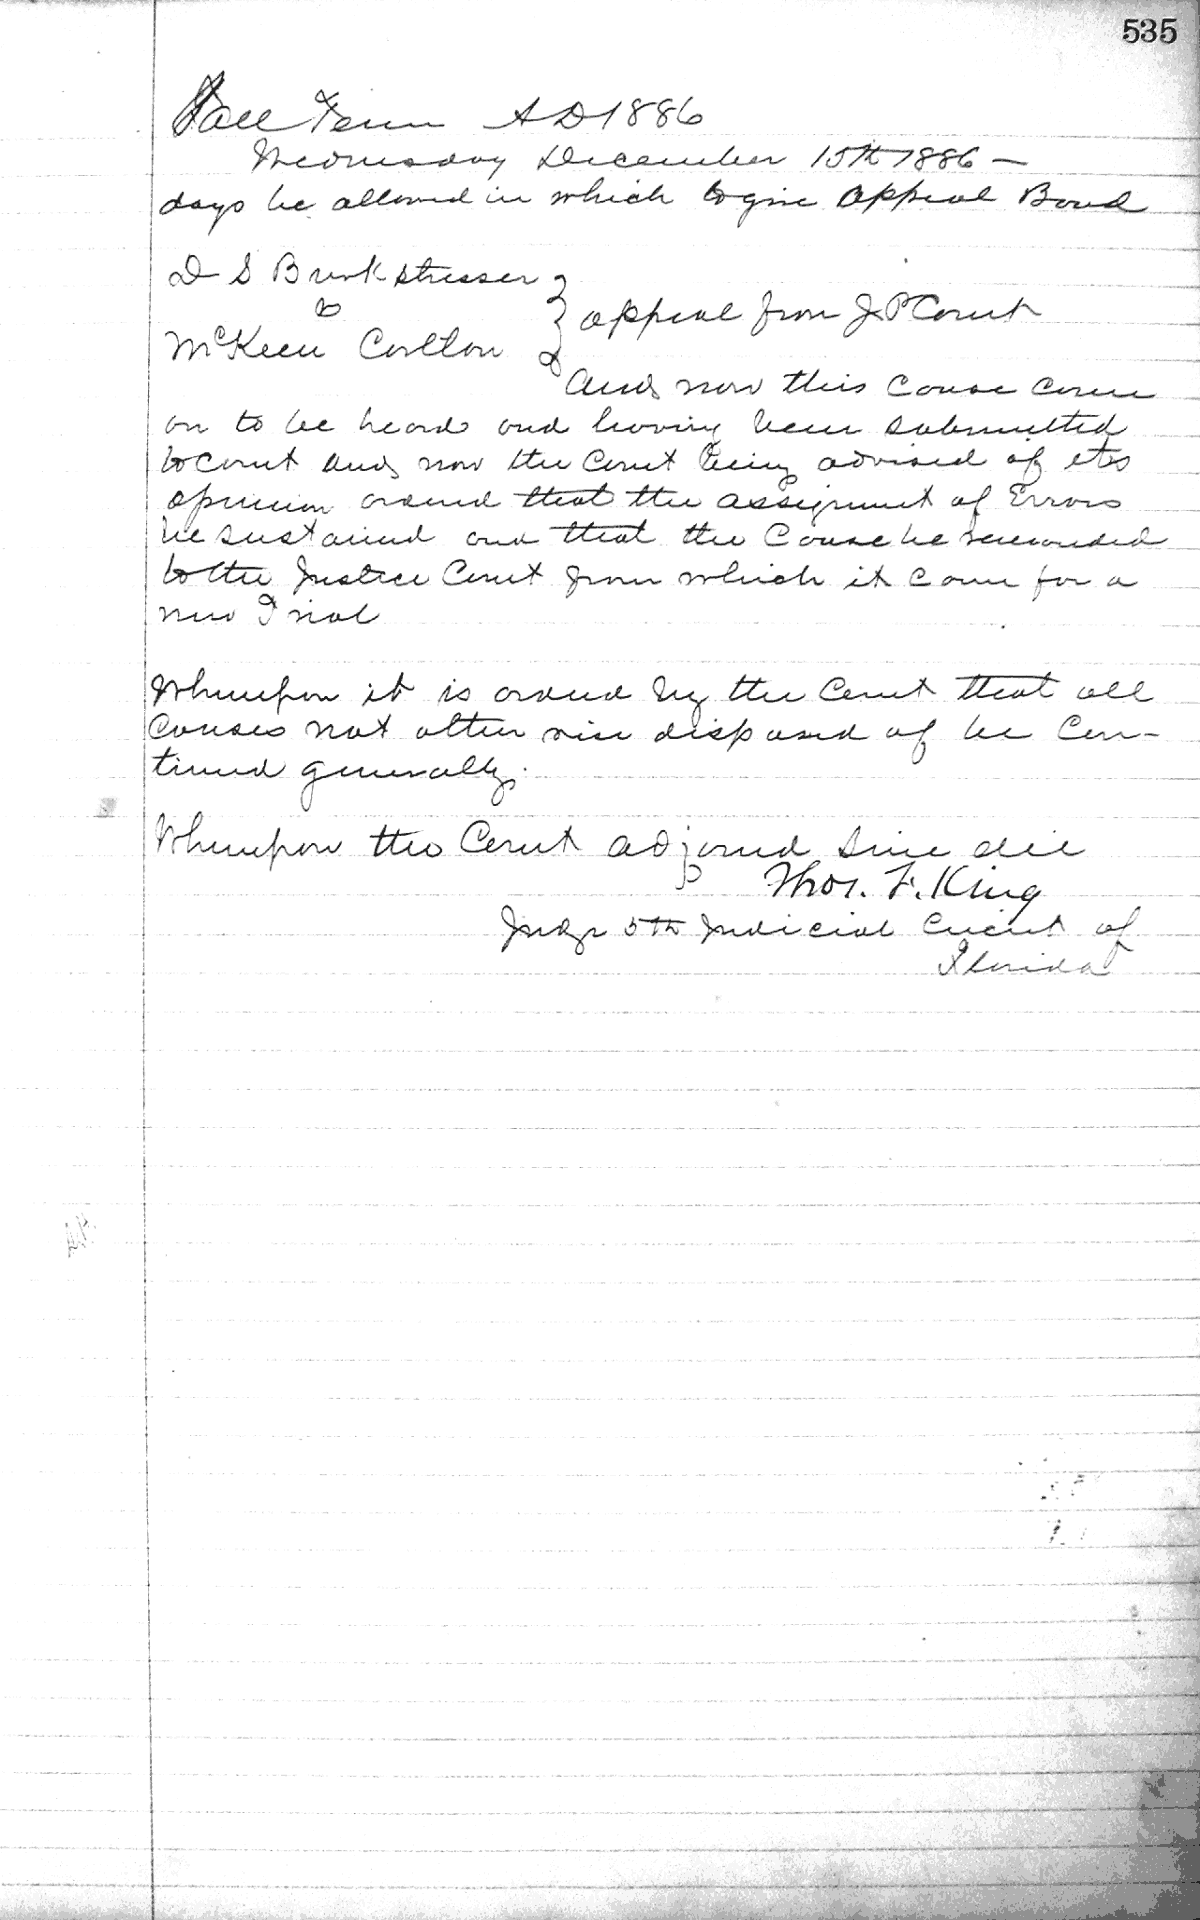 535
Fall Term A D 1886
Wednesday December 15th 1886 —
days be allowed in which to give Appeal Bond
D S Burkstresser
vs
McKeen Carlton
appeal from J P Court
And now this Cause came
on to be heard and having been submitted
to court and now the Court being advised of its
opinion ordered that the assignment of Errors
be sustained and that the Cause be remanded
to the Justice Court from which it came for a
new Trial
Whereupon it is ordered by the Court that all
Causes not otherwise disposed of be Con-
tinued generally.
Whereupon the Court adjorned Sine die
Thos. F. King
Judge 5th Judicial Circuit of
Florida